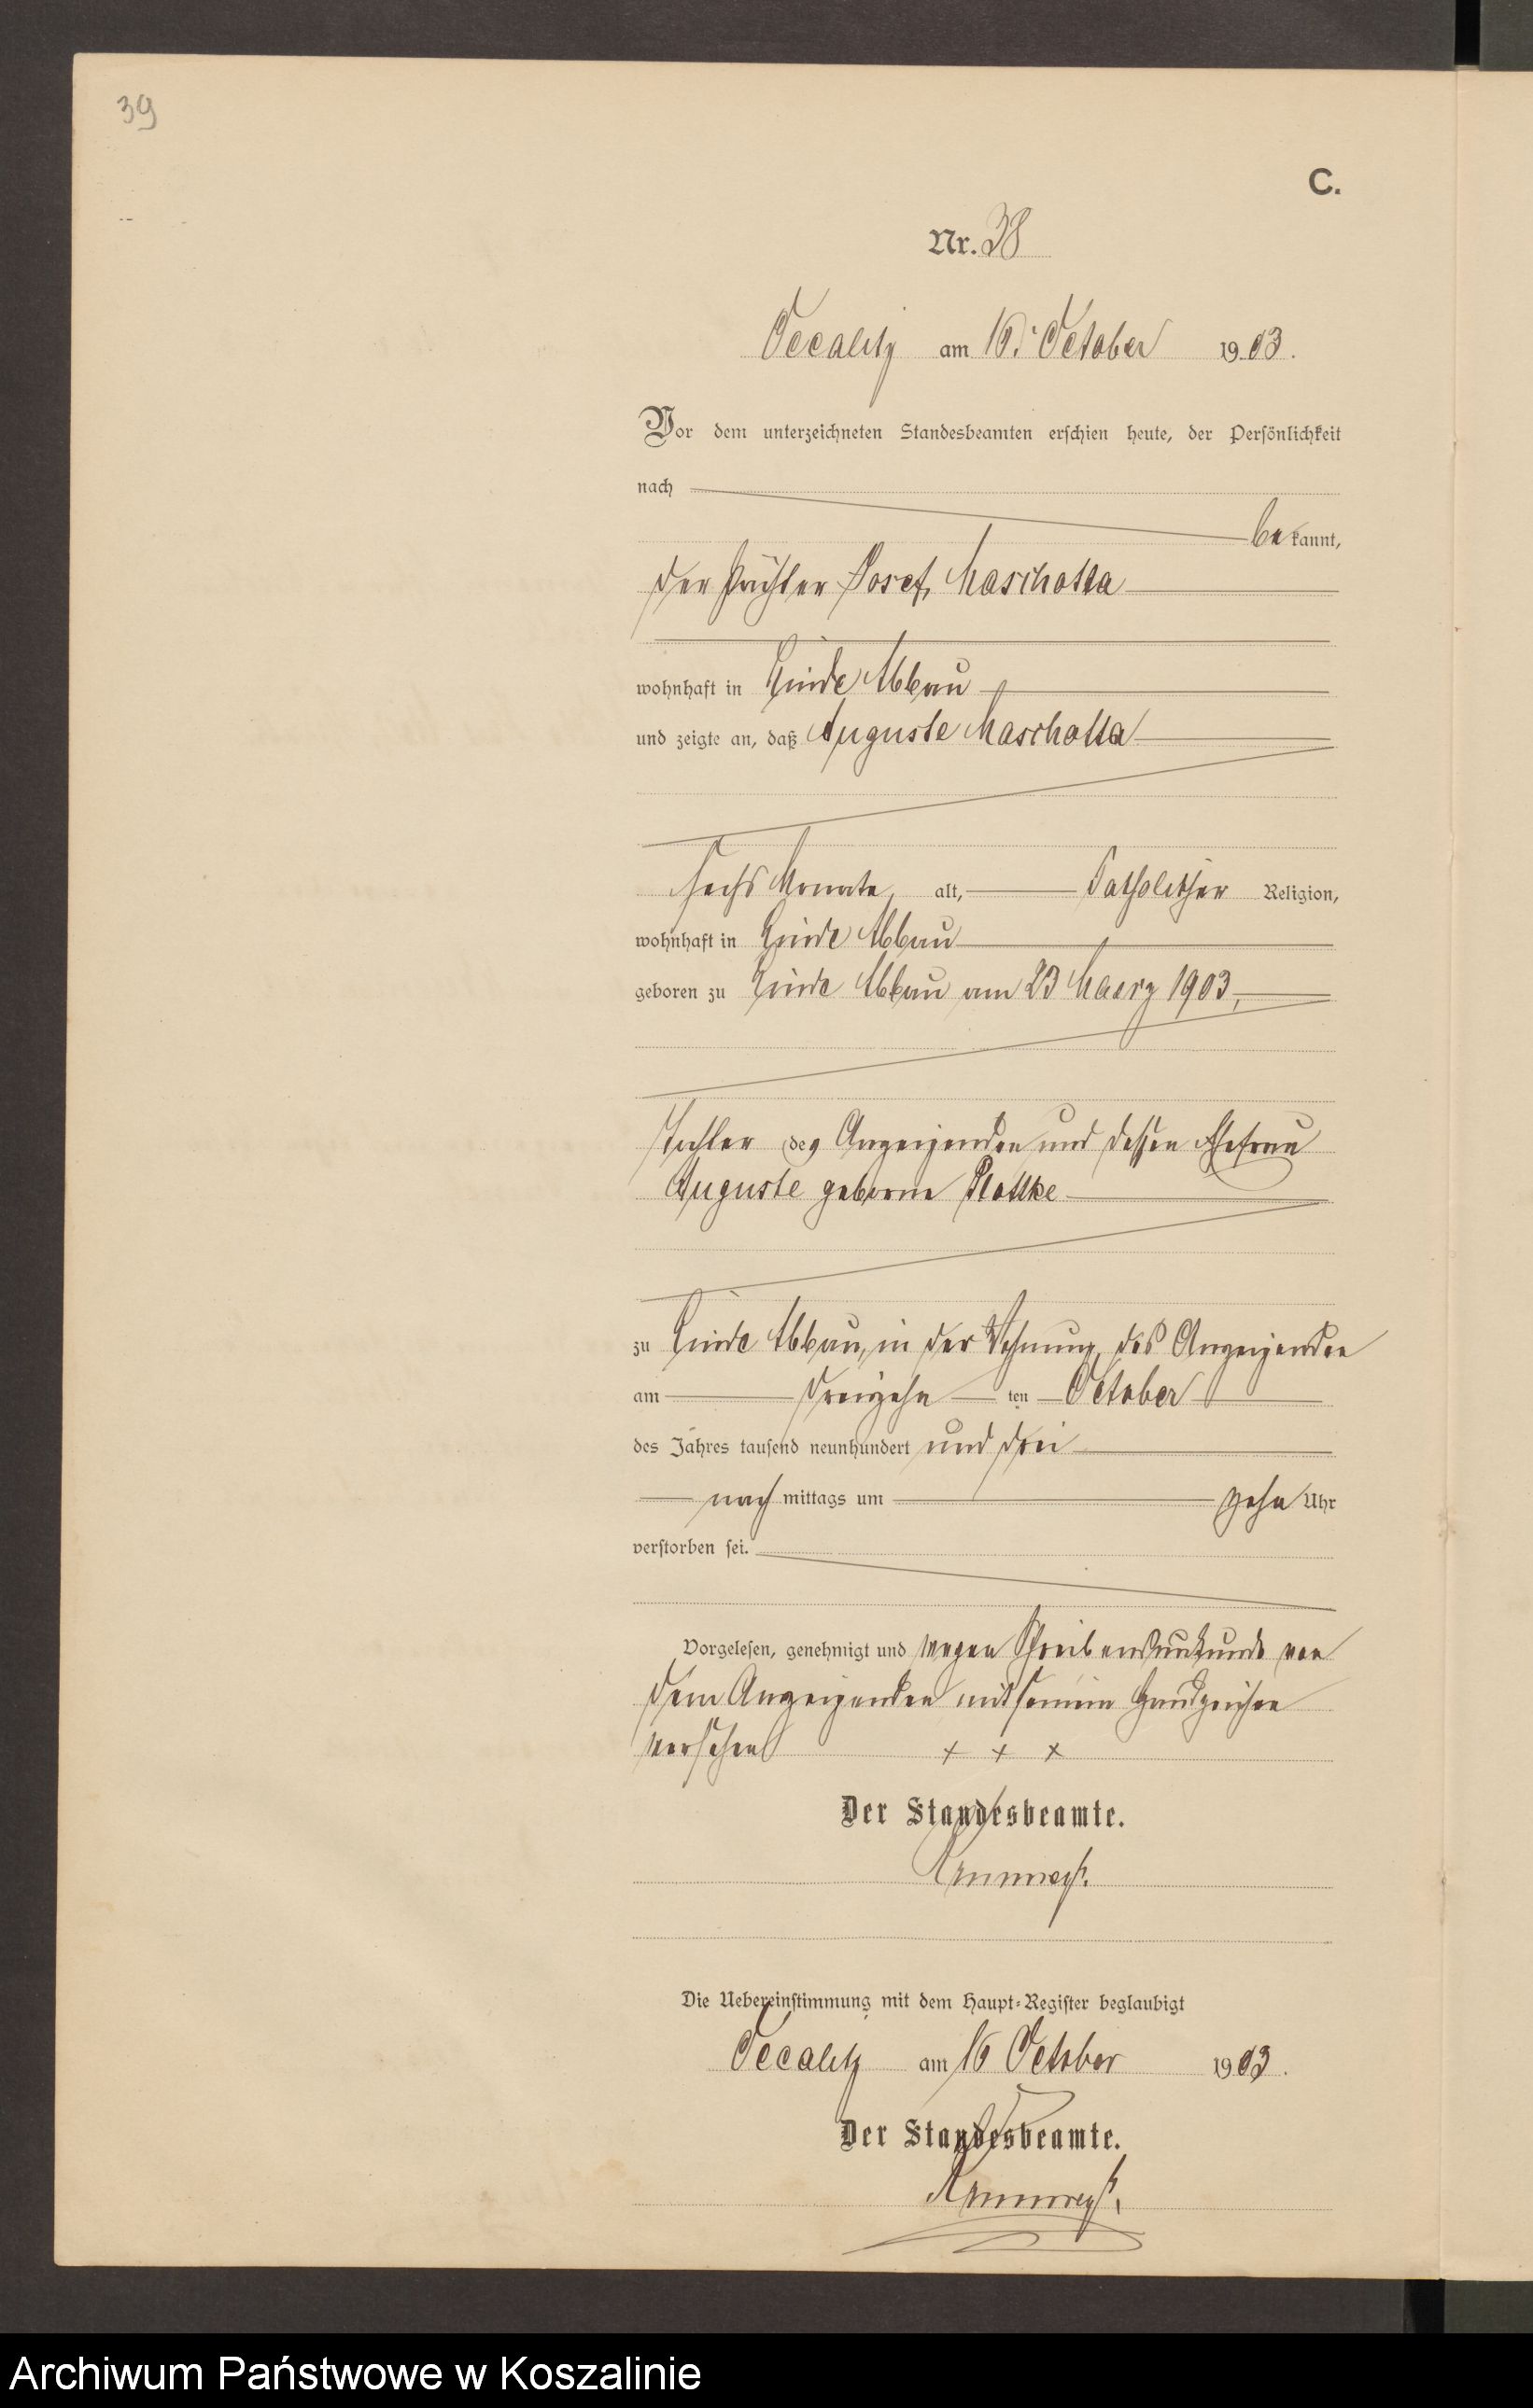 39
C.
Nr. 38
Occalitz am 16. October 1903.
Vor dem unterzeichneten Standesbeamten erschien heute, der Persönlichkeit
nach
bekannt,
der Pächter Josef Maschotta
wohnhaft in Linde Abbau
und zeigte an, daß Auguste Maschotta
sechs Monate, alt, katholischer Religion,
wohnhaft in Linde Abbau
geboren zu Linde Abbau am 23 Maerz 1903,
Tochter des Anzeigenden und dessen Ehefrau
Auguste geborne Plottke
zu Linde Abbau, in der Wohnung des Anzeigenden
am dreizehn ten October
des Jahres tausend neunhundert und drei
nachmittags um zehn Uhr
verstorben sei.
Vorgelesen, genehmigt und wegen Schreibensunkunde von
dem Anzeigenden mit seinem Handzeichen
versehen + + x
Der Standesbeamte.
Die Uebereinstimmung mit dem Haupt-Register beglaubigt
Occalitz am 16 October 1903.
Der Standesbeamte.
Archiwum Państwowe w Koszalinie